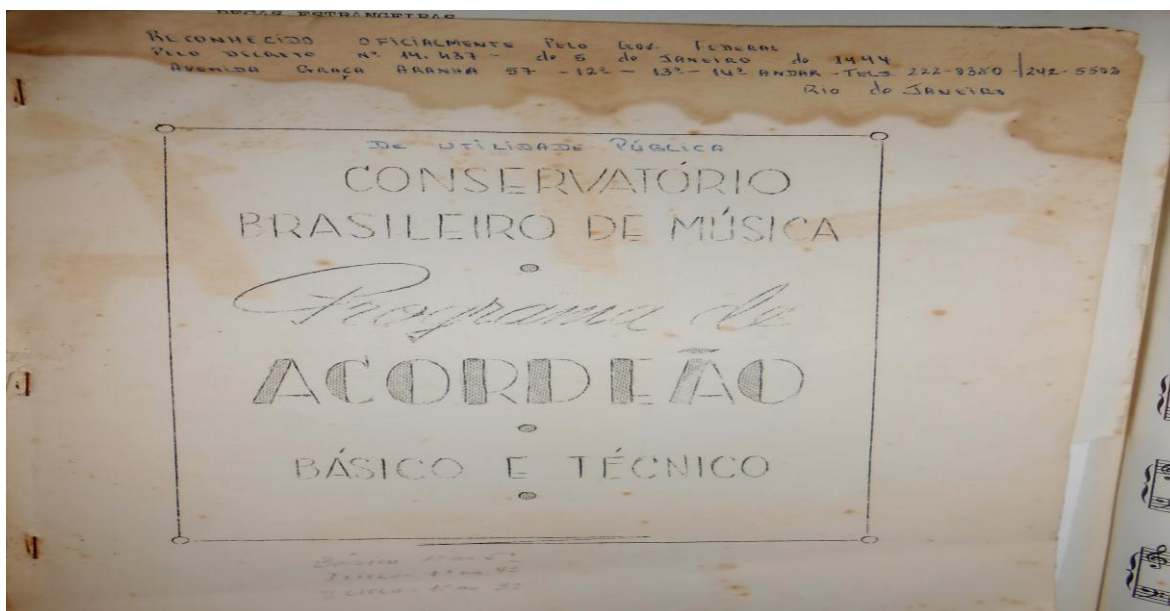 PEÇAS ESTRANGEIRAS
RECONHECIDO OFICIALMENTE PELO GOV. FEDERAL
PELO DECRETO Nº 14.437 - de 5 de JANEIRO de 1944
AVENIDA GRAÇA ARANHA 57 - 12º - 13º - 14º ANDAR - TELS 222-0380 / 242-5502
RIO de JANEIRO
DE UTILIDADE PÚBLICA
CONSERVATÓRIO
BRASILEIRO DE MÚSICA
Programa de
ACORDEÃO
BÁSICO E TÉCNICO